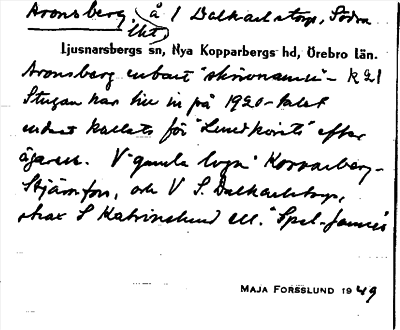 Aronsberg. å 1 Dalkarlstorp, Södra
Ljusnarsbergs sn, Nya Kopparbergs hd, Örebro län.
Aronsberg enbart "skrivnamn" – k 21
Stugan har in på 1920-talet
endast kallats för "Lundkvists" efter
ägaren. V gamla Kopparberg-
Stjärnfors, och V S. Dalkarlstorp,
strax S Katrinelund ell. "Spel-Jannes
MAJA FORSSLUND 1949